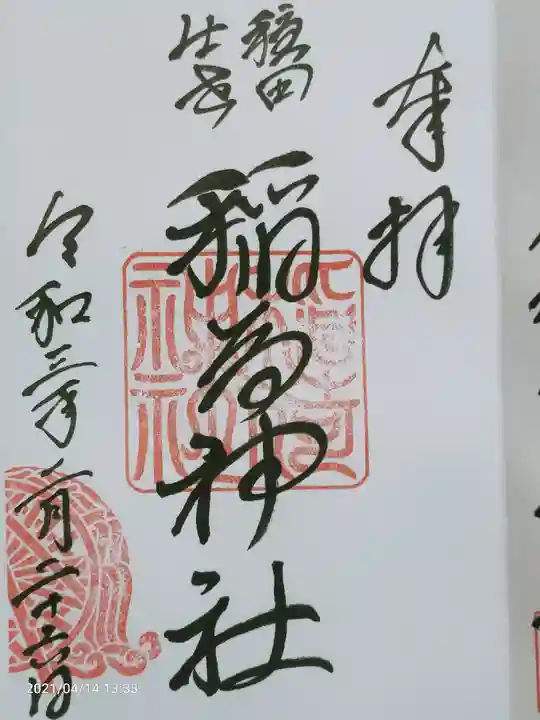 奉拝
稲荷神社
令和三年二月二十六日
2021/04/14 13:33